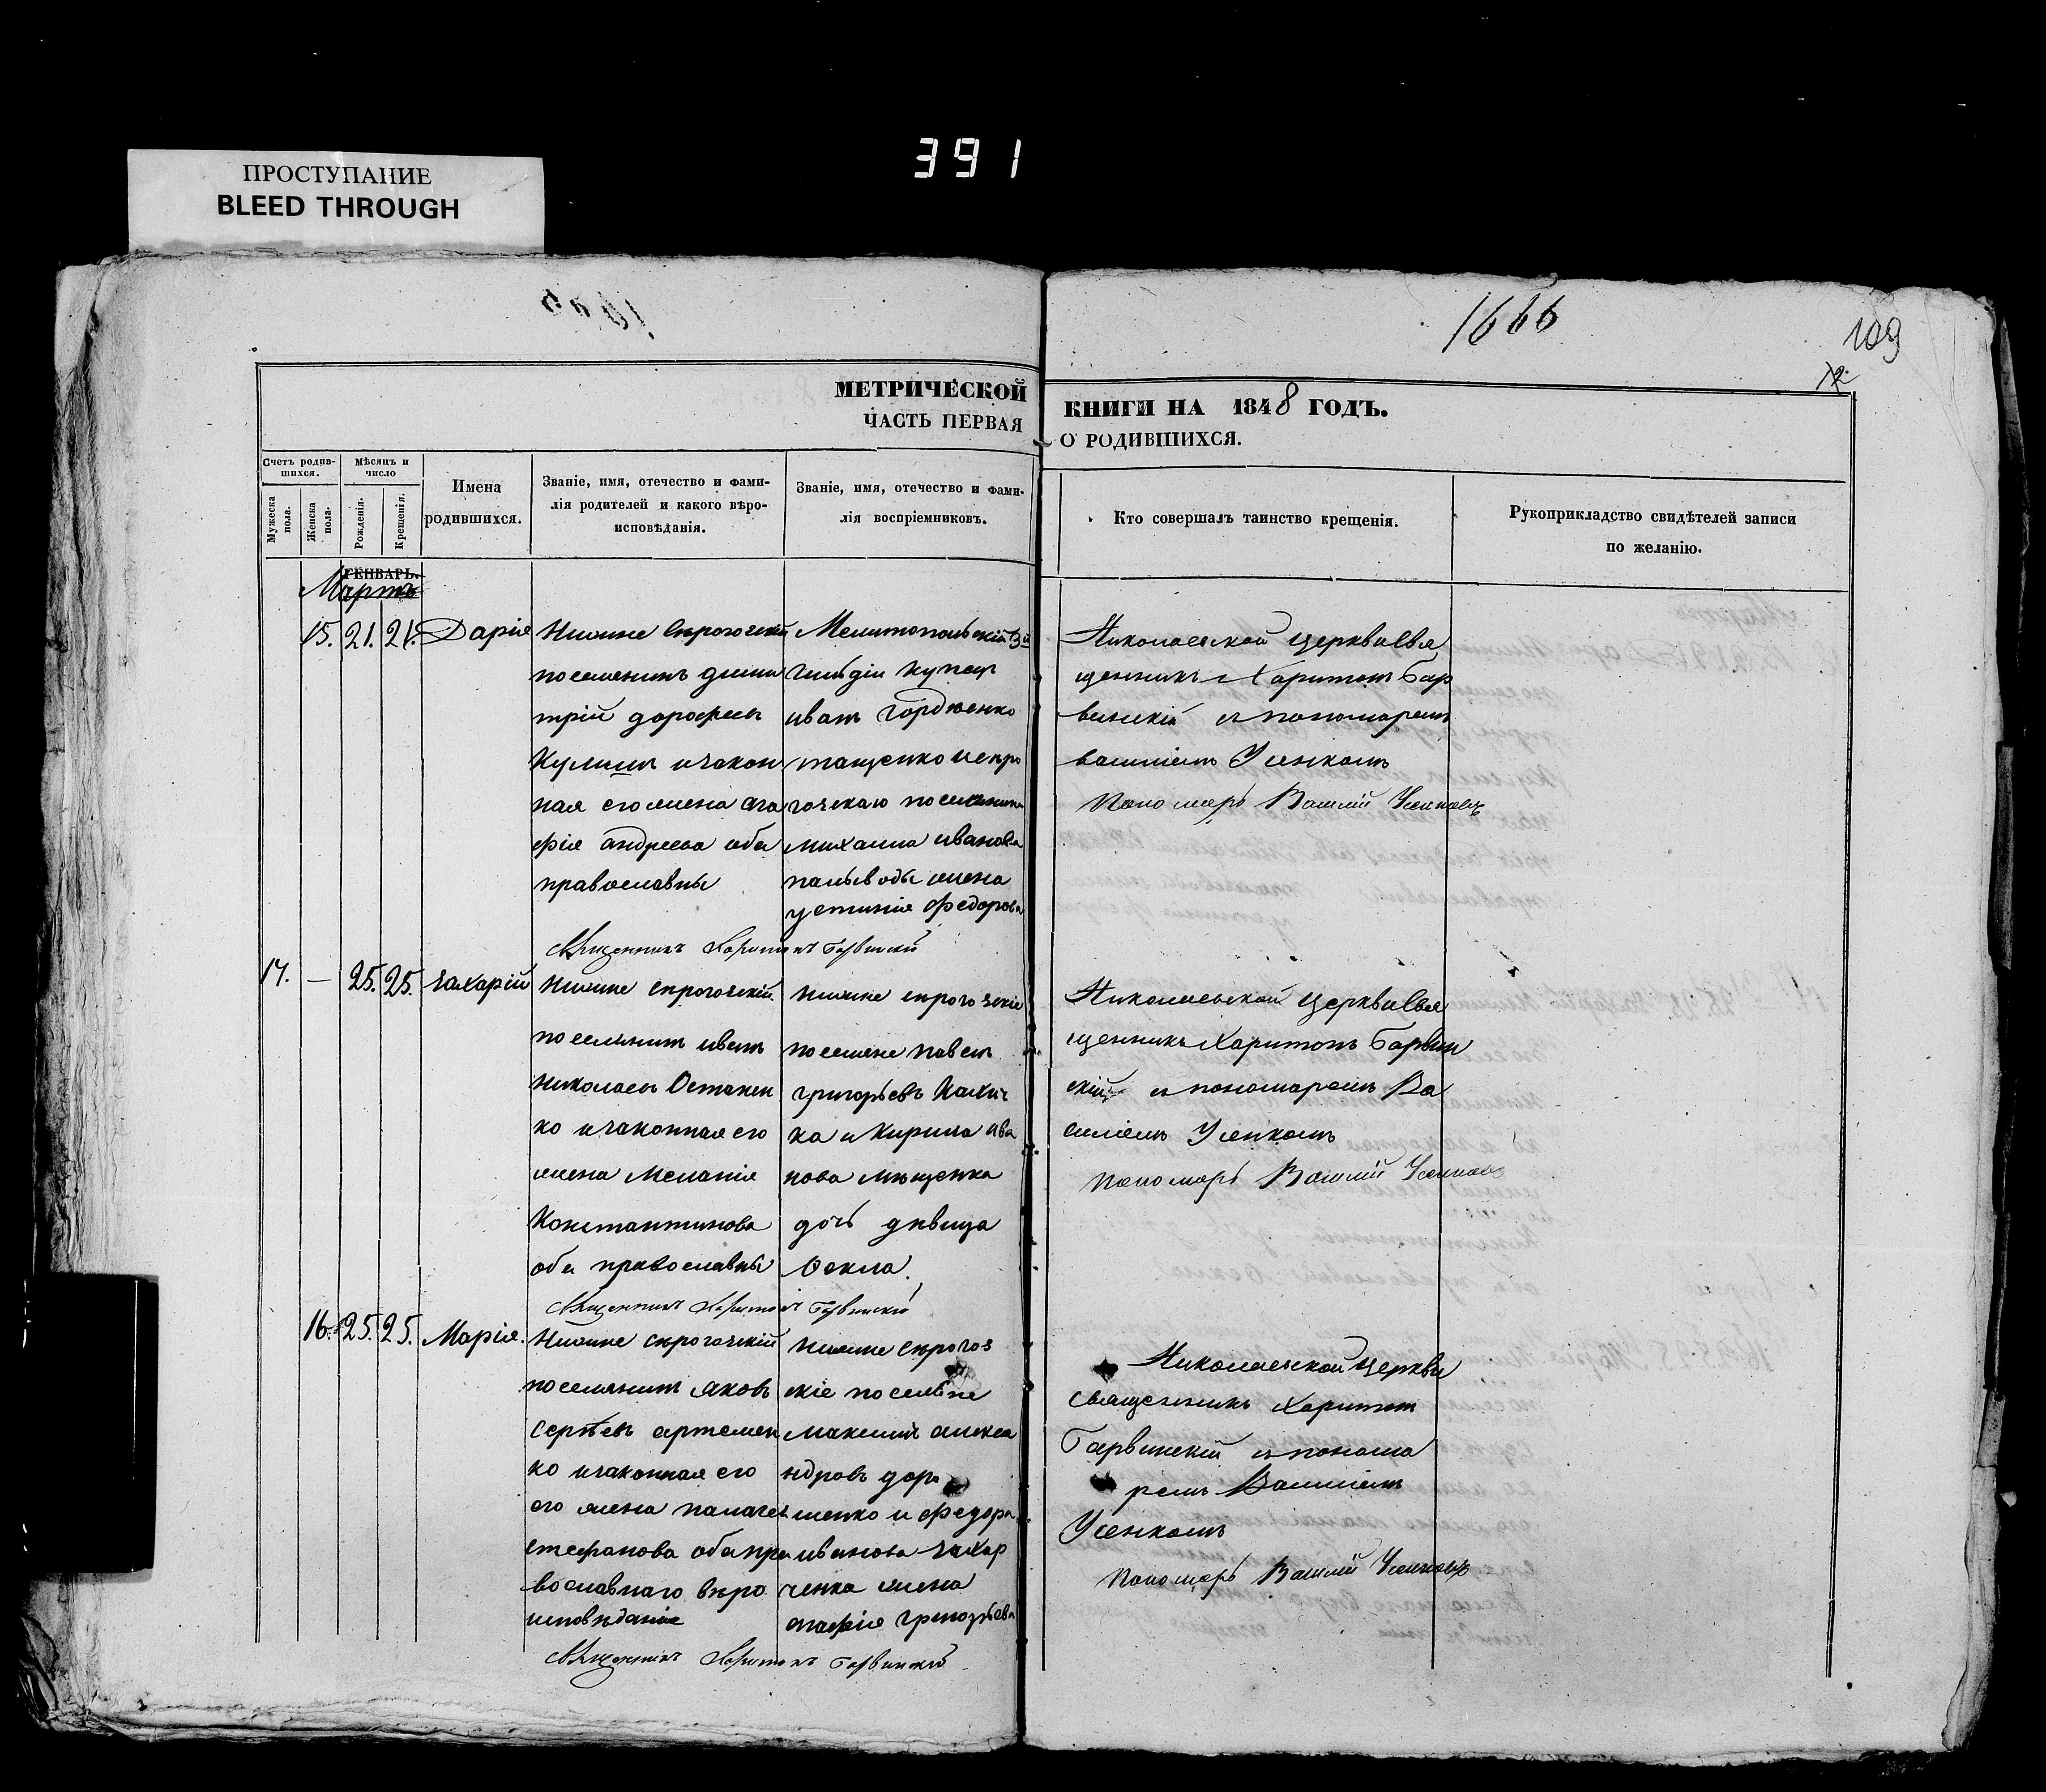 391
ПРОСТУПАНИЕ
BLEED THROUGH
1666
109
12
МЕТРИЧЕСКОЙ КНИГИ НА 1848 ГОДЪ.
ЧАСТЬ ПЕРВАЯ О РОДИВШИХСЯ.
Счетъ родив-
шихся.
Мужеска пола.
Женска пола.
Мѣсяцъ и
число
Рожденія.
Крещенія.
Имена
родившихся.
Званіе, имя, отечество и фами-
лія родителей и какого вѣро-
исповѣданія.
Званіе, имя, отечество и фами-
лія воспріемниковъ.
Кто совершалъ таинство крещенія.
Рукоприкладство свидѣтелей записи
по желанію.
ГЕНВАРЬ.
Мартъ
15. 21. 21. Дарія
Нижне Сѣрогозскій
поселянинъ дими
трій дорофеевъ
Кулишъ и закон
ная его жена ага
фія андреева оба
православны
Мелитопольскій 3й
гильдіи купецъ
иванъ гордѣенко
тащенко и сѣро
гозскаго поселянина
михаила иванова
пальводы жена
устинія федорова
Николаевской церкви свя
щенникъ Харитонъ Бар
винскій съ пономаремъ
василіемъ Усенкомъ
Пономарь Василій Усенковъ
Священникъ Харитонъ Барвинскій
17. — 25. 25. захарій
Нижне сѣрогозскій
поселянинъ иванъ
николаевъ Остапен
ко и законная его
жена Меланія
Константинова
оба православны
нижне сѣрогозскіе
поселяне павелъ
григорьевъ
ка и Кирила ива
нова мищенка
дочь дѣвица
Ѳекла.
Николаевской церкви свя
щенникъ Харитонъ Барвин
скій съ пономаремъ Ва
силіемъ Усенкомъ
Пономарь Василій Усенковъ
Священникъ Харитонъ Барвинскій
16. 25. 25. Марія.
Нижне сѣрогозскій
поселянинъ яковъ
сергѣевъ артемен
ко и законная его
его жена палагея
стефанова оба пра
вославнаго вѣро
исповѣданіе
нижне сѣрогоз
скіе поселяне
максимъ алекса
ндровъ доро
шенко и федора
иванова захар
ченка жена
агафія григорьева
Николаевской церкви
священникъ Харитонъ
Барвинскій съ понома
ремъ Василіемъ
Усенкомъ
Пономарь Василій Усенковъ
Священникъ Харитонъ Барвинскій